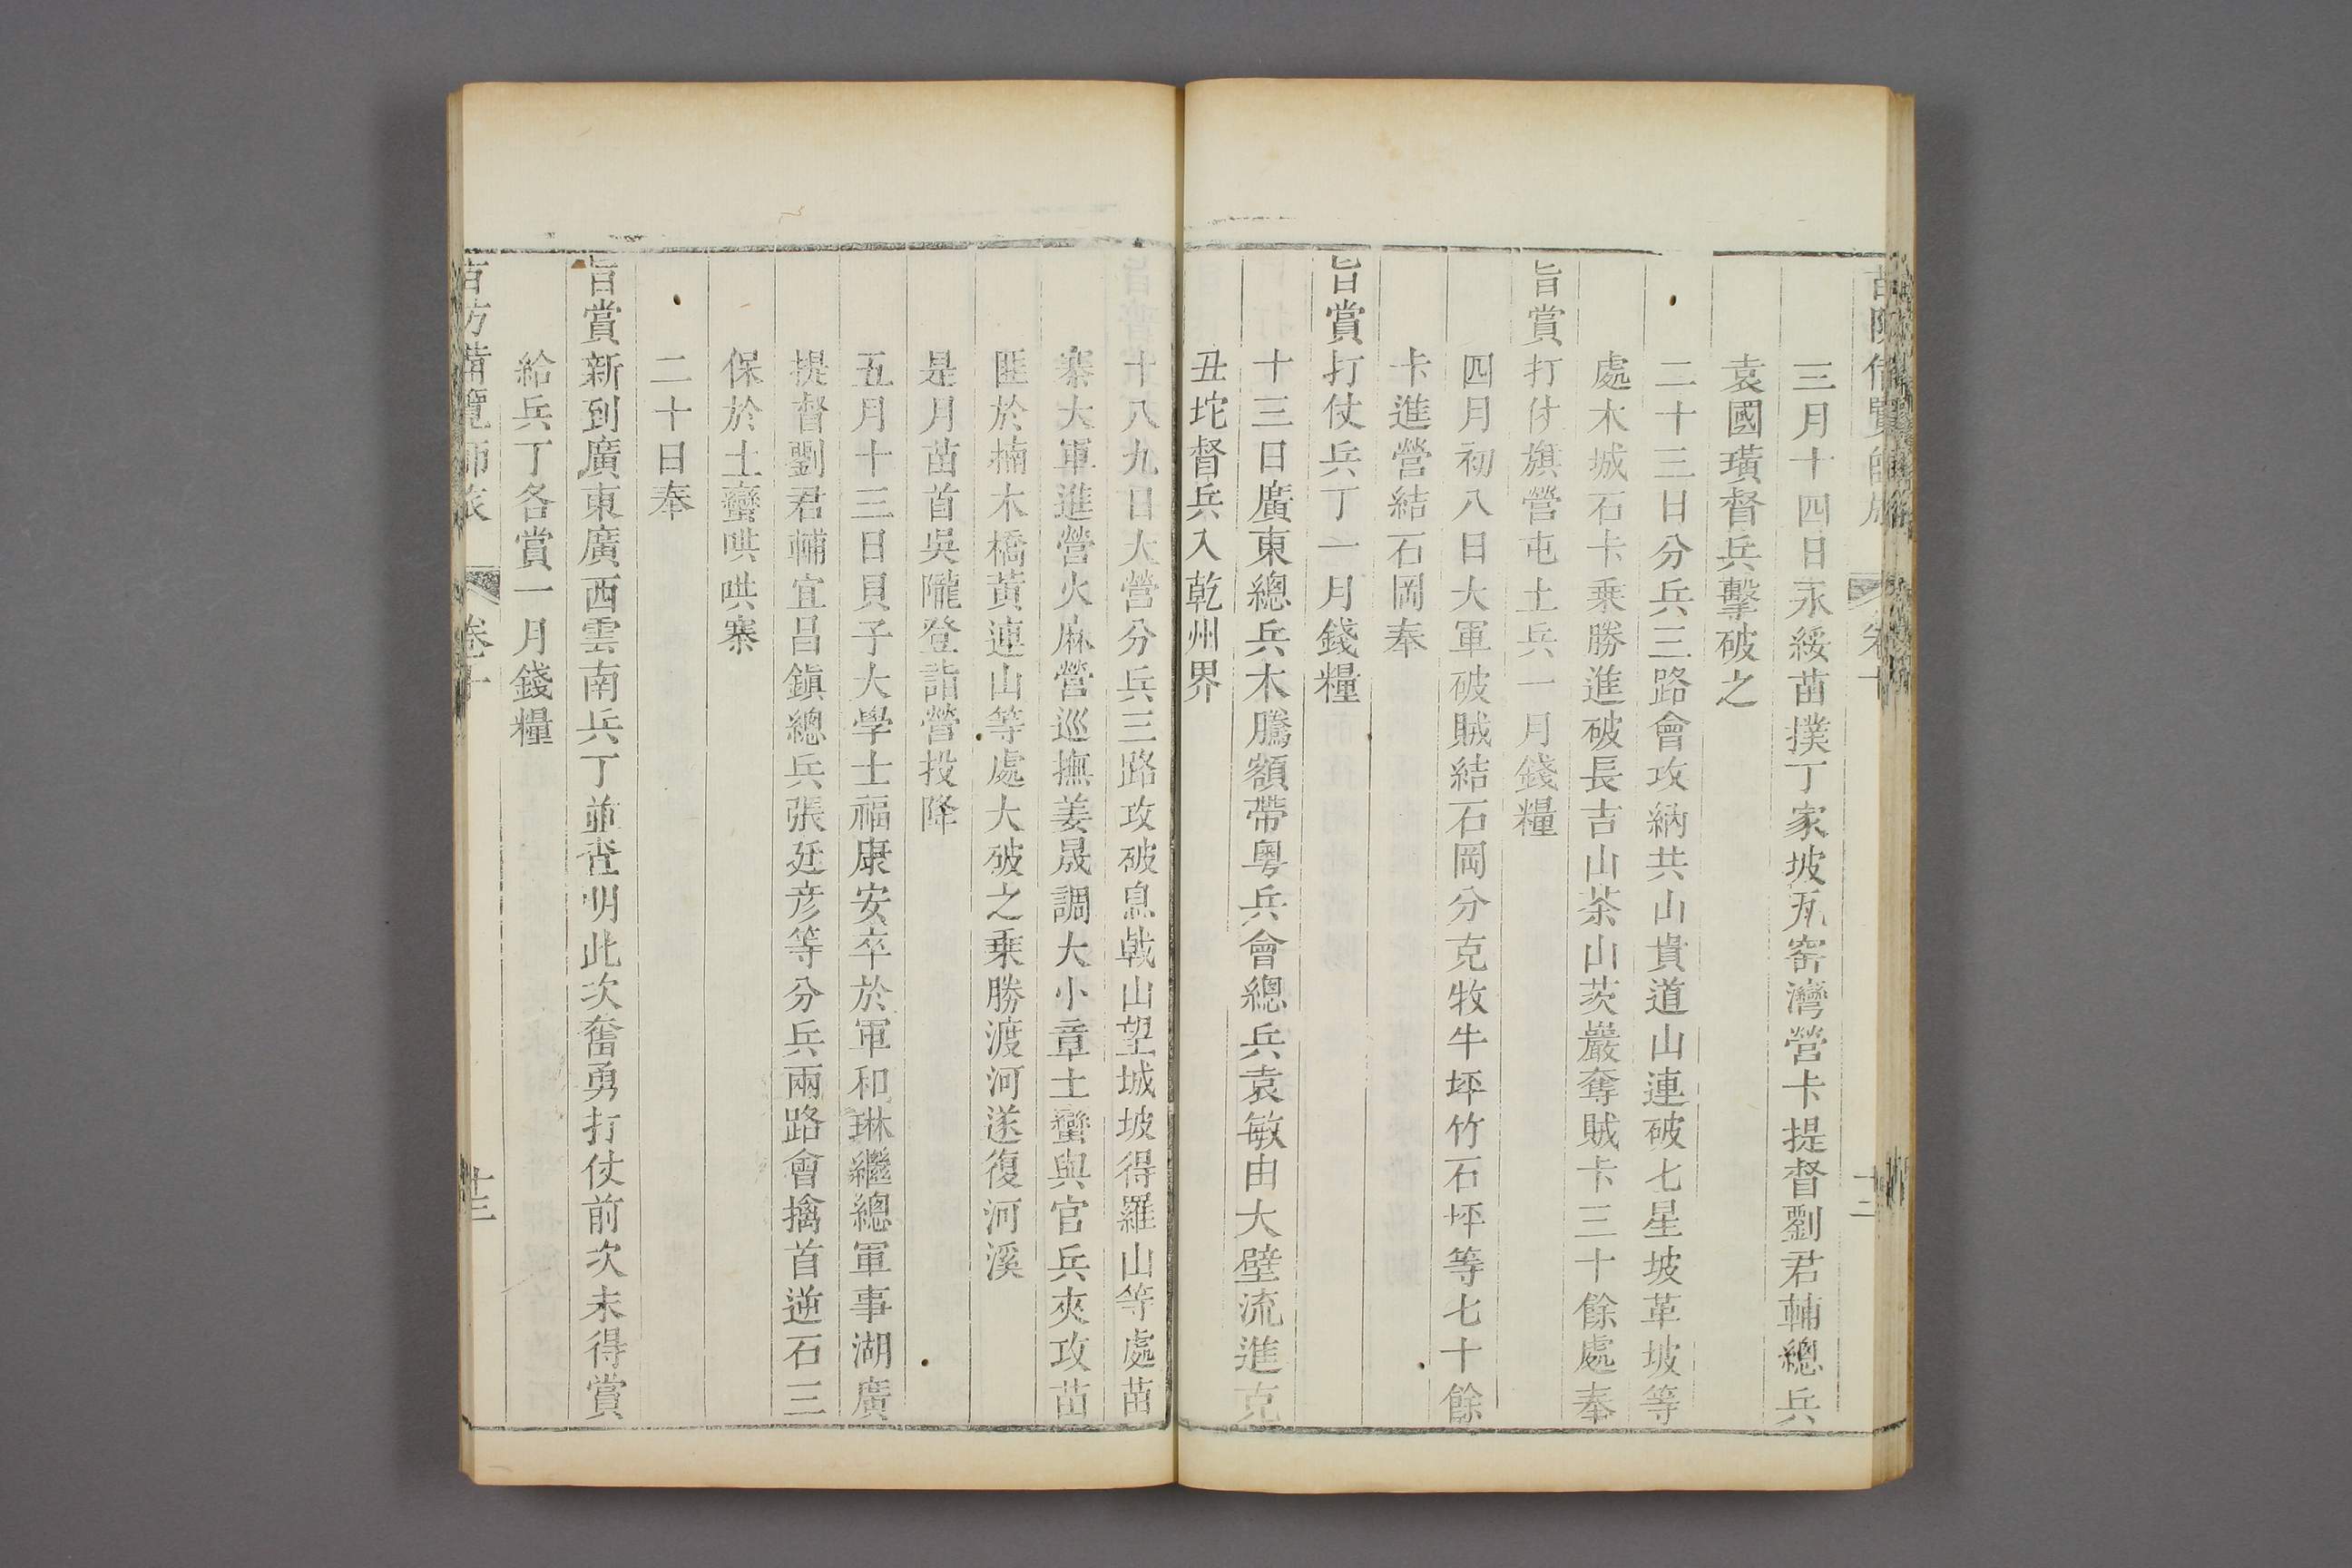 三月十四日永綏苗撲丁家坡瓦窑灣營卡提督劉君輔總兵
袁國璜督兵擊破之
二十三日分兵三路會攻納共山貴道山連破七星坡革坡等
處木城石卡乗勝進破長吉山茶山茨巖奪賊卡三十餘處奉
旨賞打仗旗營屯土兵一月錢糧
四月初八日大軍破賊結石岡分克牧牛坪竹石坪等七十餘
卡進營結石岡奉
旨賞打仗兵丁一月錢糧
十三日廣東總兵木騰額帶粵兵會總兵袁敏由大壁流進克
丑坨督兵入乾州界
十八九日大營分兵三路攻破息戟山望城坡得羅山等處苗
寨大軍進營火麻營巡撫姜晟調大小章土蠻與官兵夾攻苗
匪於楠木橋黃連山等處大破之乗勝渡河遂復河溪
是月苗首吳隴登詣營投降
五月十三日貝子大學士福康安卒於軍和琳繼總軍事湖廣
提督劉君輔宜昌鎮總兵張廷彥等分兵兩路會擒首逆石三
保於土蠻哄哄寨
二十日奉
旨賞新到廣東廣西雲南兵丁並查明此次奮勇打仗前次未得賞
給兵丁各賞一月錢糧
苗防備覽師旅 卷十 十三